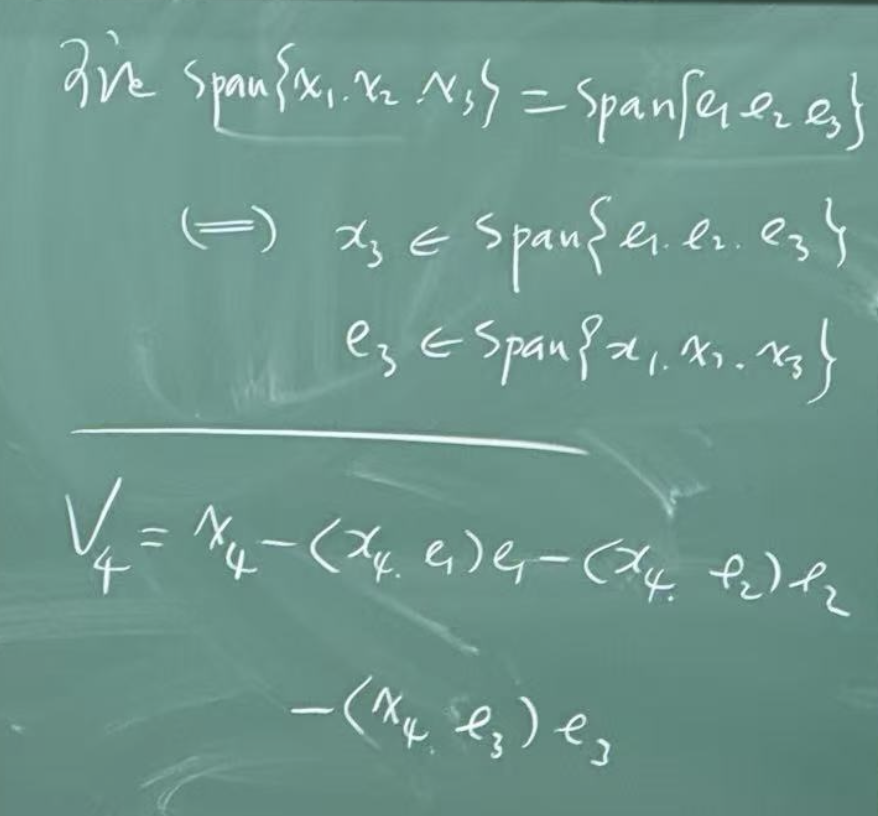 Span{x₁. x₂ .x₃} = Span{e₁ e₂ e₃}
(=) x₃ ∈ Span{e₁. e₂. e₃}
e₃ ∈ Span{x₁. x₂. x₃}
V₄ = x₄ - (x₄. e₁)e₁ - (x₄. e₂)e₂
- (x₄. e₃)e₃